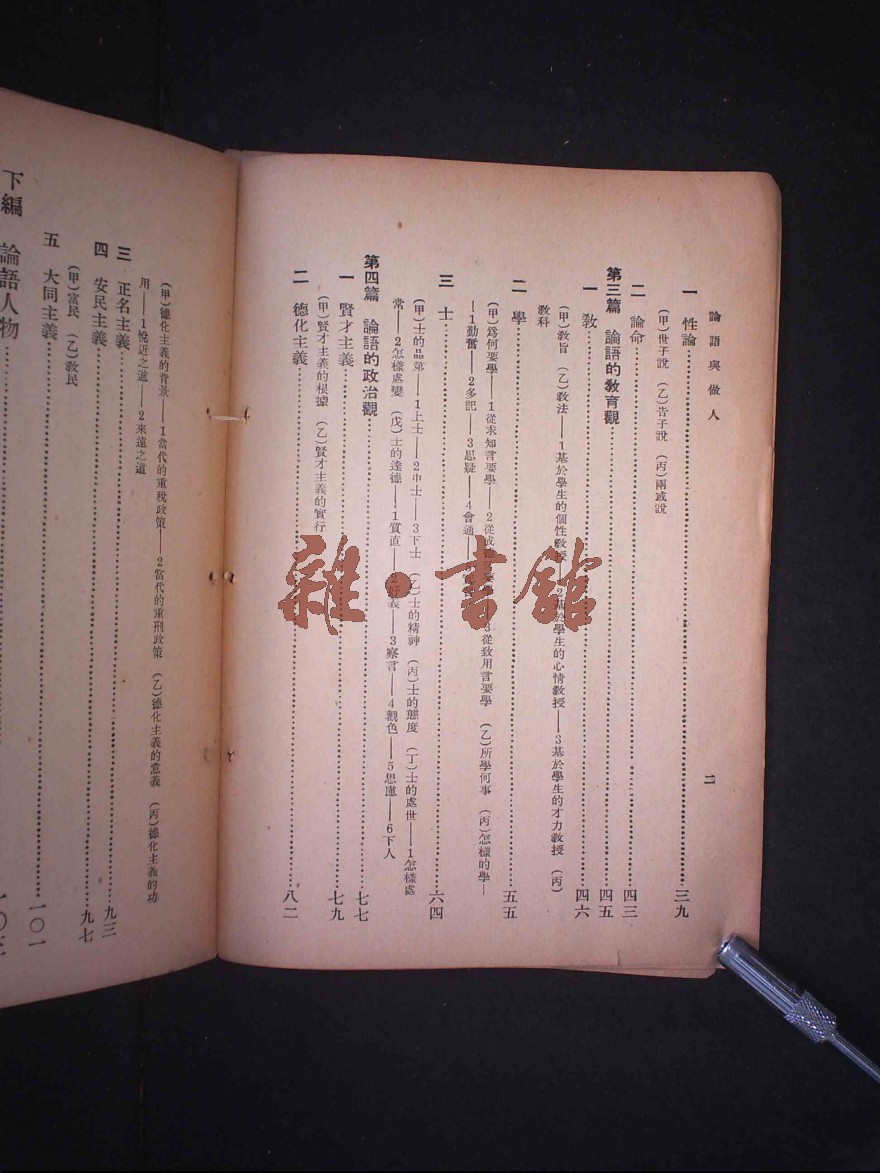 論語與做人
二
一 性論……三九
(甲)世子說 (乙)告子說 (丙)兩或說
二 論命……四三
第三篇 論語的教育觀……四五
一 教……四六
(甲)教旨 (乙)教法——1基於學生的個性教授——2基於學生的心情教授——3基於學生的才力教授 (丙)
教科
二 學……五五
(甲)爲何要學——1從求知言要學——2從 3從致用言要學 (乙)所學何事 (丙)怎樣的學—
—1勤奮——2多記——3思疑——4會通
三 士……六四
(甲)士的品第——1上士——2中士——3下士 (乙)士的精神 (丙)士的態度 (丁)士的處世——1怎樣處
常——2怎樣處變 (戊)士的達德——1質直——2好義——3察言——4觀色——5思慮——6下人
第四篇 論語的政治觀……七七
一 賢才主義……七九
(甲)賢才主義的根據 (乙)賢才主義的實行
二 德化主義……八二
(甲)德化主義的背景——1當代的重稅政策——2當代的重刑政策 (乙)德化主義的意義 (丙)德化主義的功
用——1悅近之道——2來遠之道
三 正名主義……九三
四 安民主義……九七
(甲)富民 (乙)教民
五 大同主義……一〇一
下編 論語人物……一〇三
雜·書館